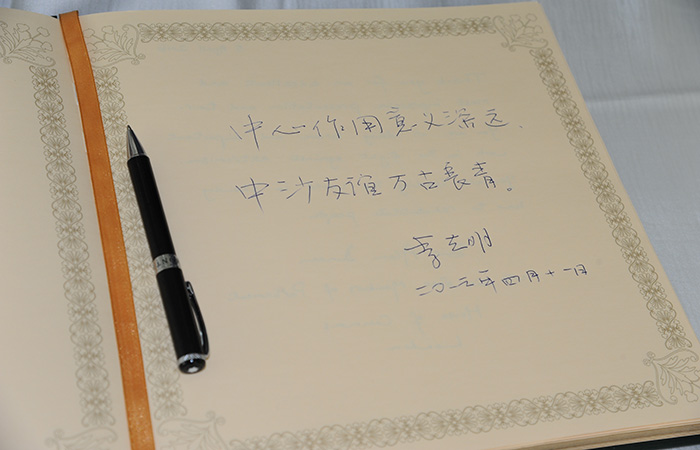 中心作用意义深远、
中沙友谊万古長青。
李 明
二〇一三年四月十一日